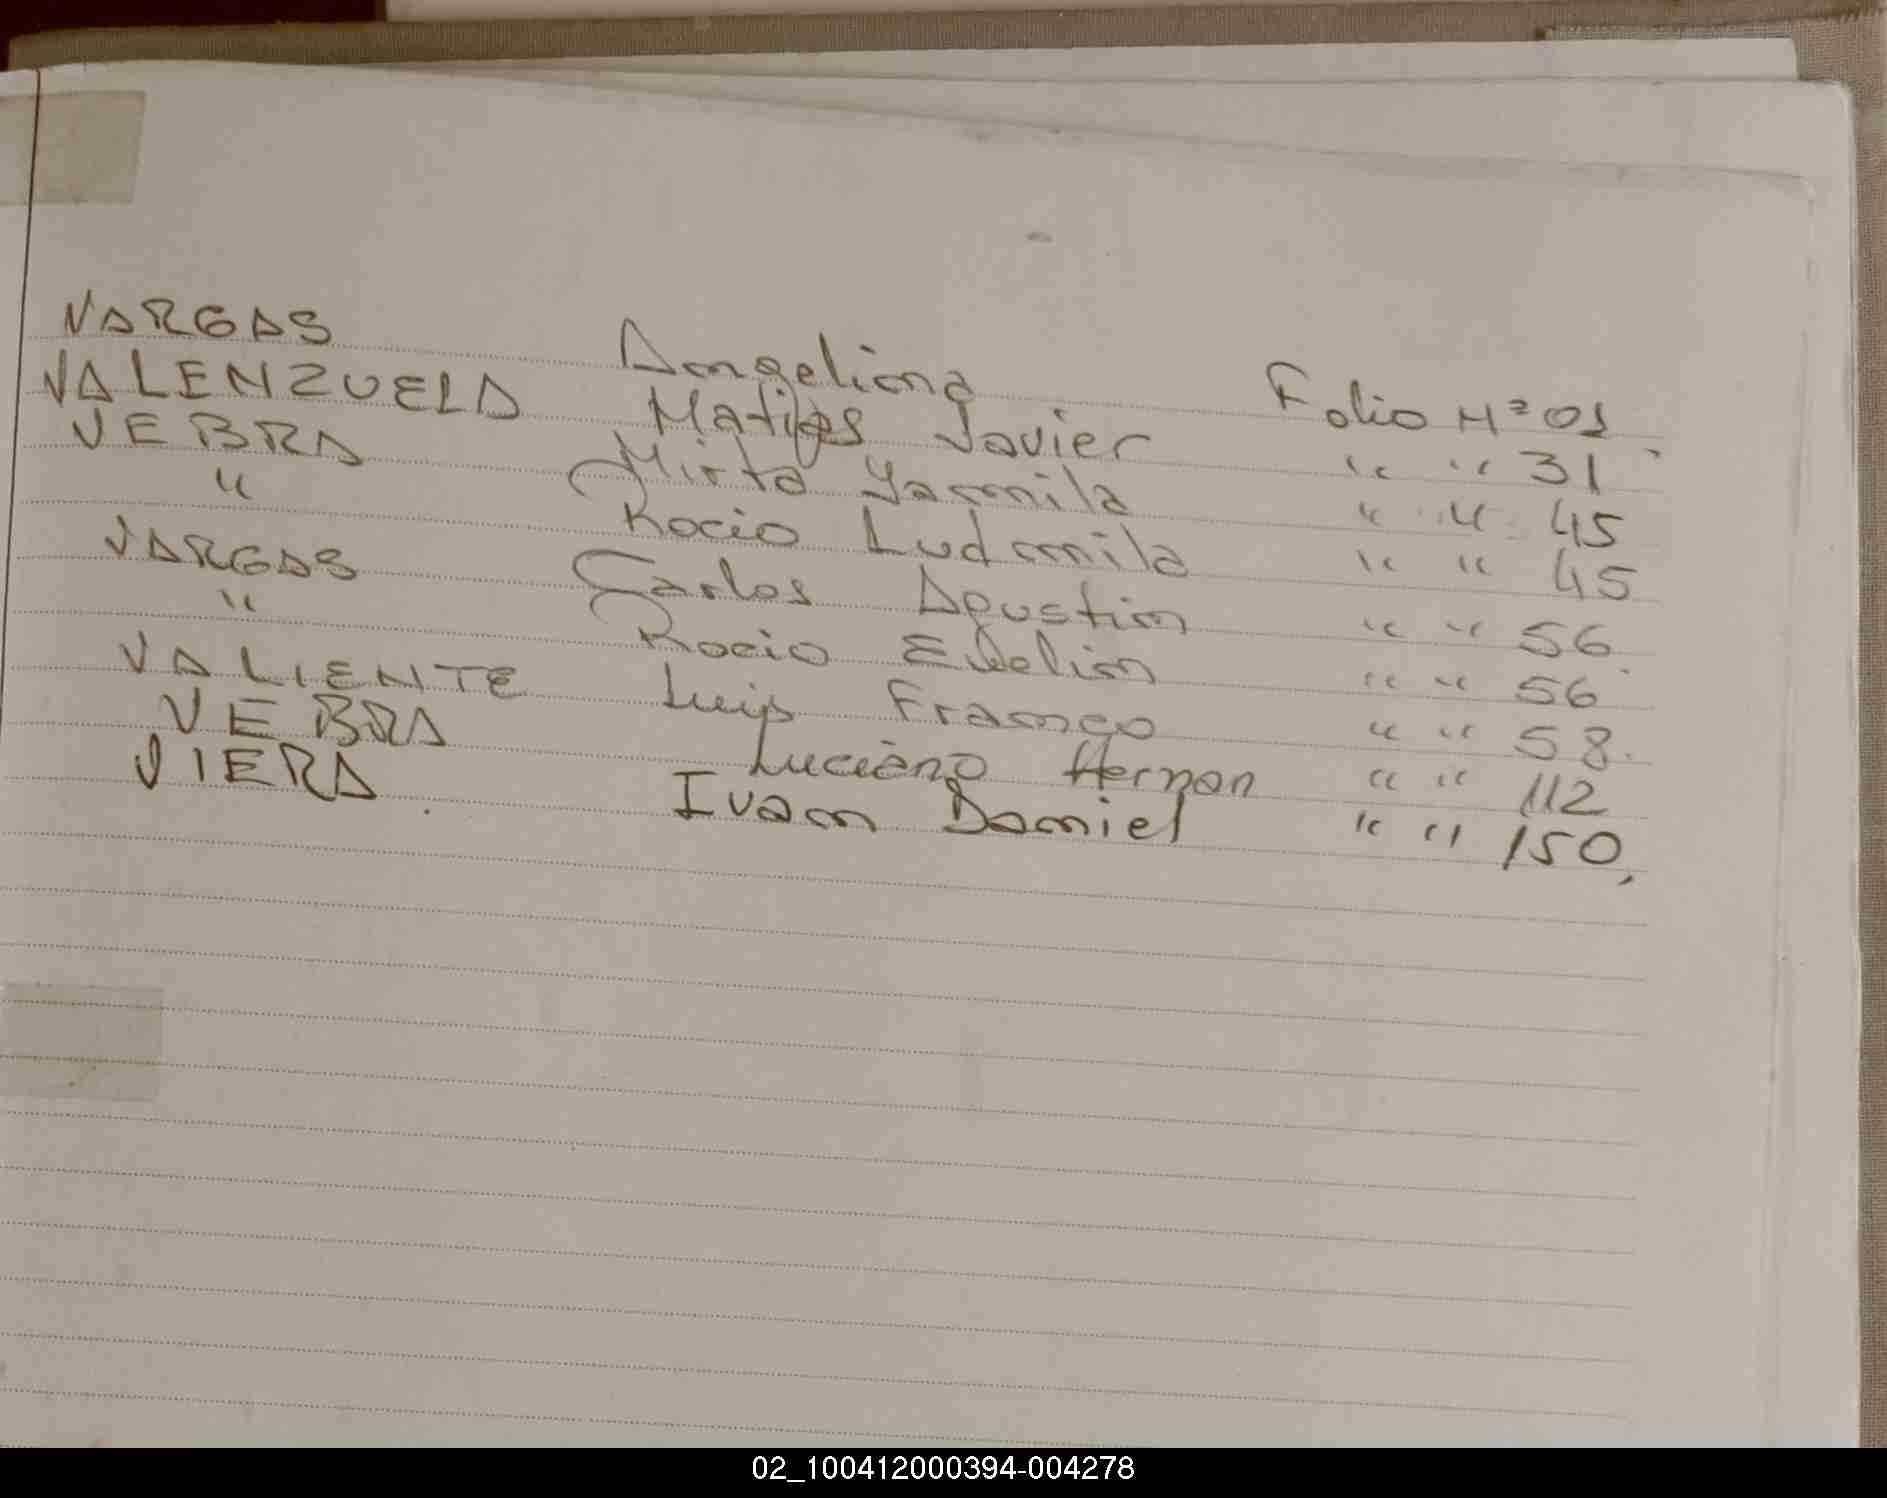 VARGAS Angelina Folio Nº 01
VALENZUELA Matias Javier " " 31
VEBRA Mirta Yamila " " 45
" Rocio Ludmila " " 45
VARGAS Carlos Agustin " " 56
" Rocio Evelin " " 56
VALIENTE Luis Franco " " 58.
VEBRA Luciano Hernan " " 112
VIERA Ivan Daniel " " 150,
02_100412000394-004278